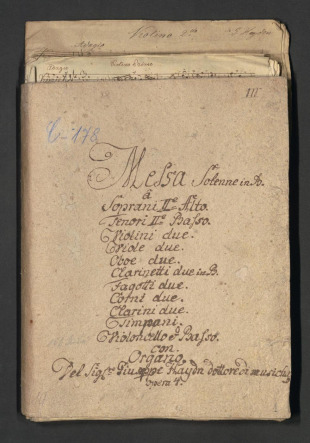 Violino 2do
Adagio
III
C-178
Messa Solenne in B.
à
Soprani II e Alto.
Tenori II e Basso.
Violini due.
Viole due.
Oboe due.
Clarinetti due in B.
Fagotti due.
Corni due.
Clarini due.
Tympani.
Violoncello e Basso.
con
Organo.
Del Sigre Giuseppe Haydn dottore di musica
opera 4.